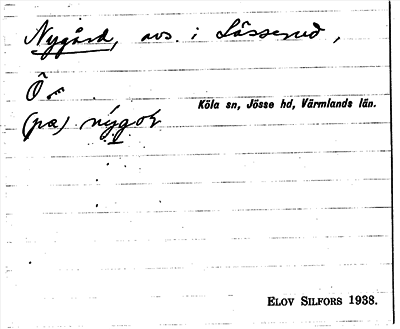 Nygård, avs. i Lässerud,
Ö
Köla sn, Jösse hd, Värmlands län.
(pa) nygoṛ
ELOV SILFORS 1938.